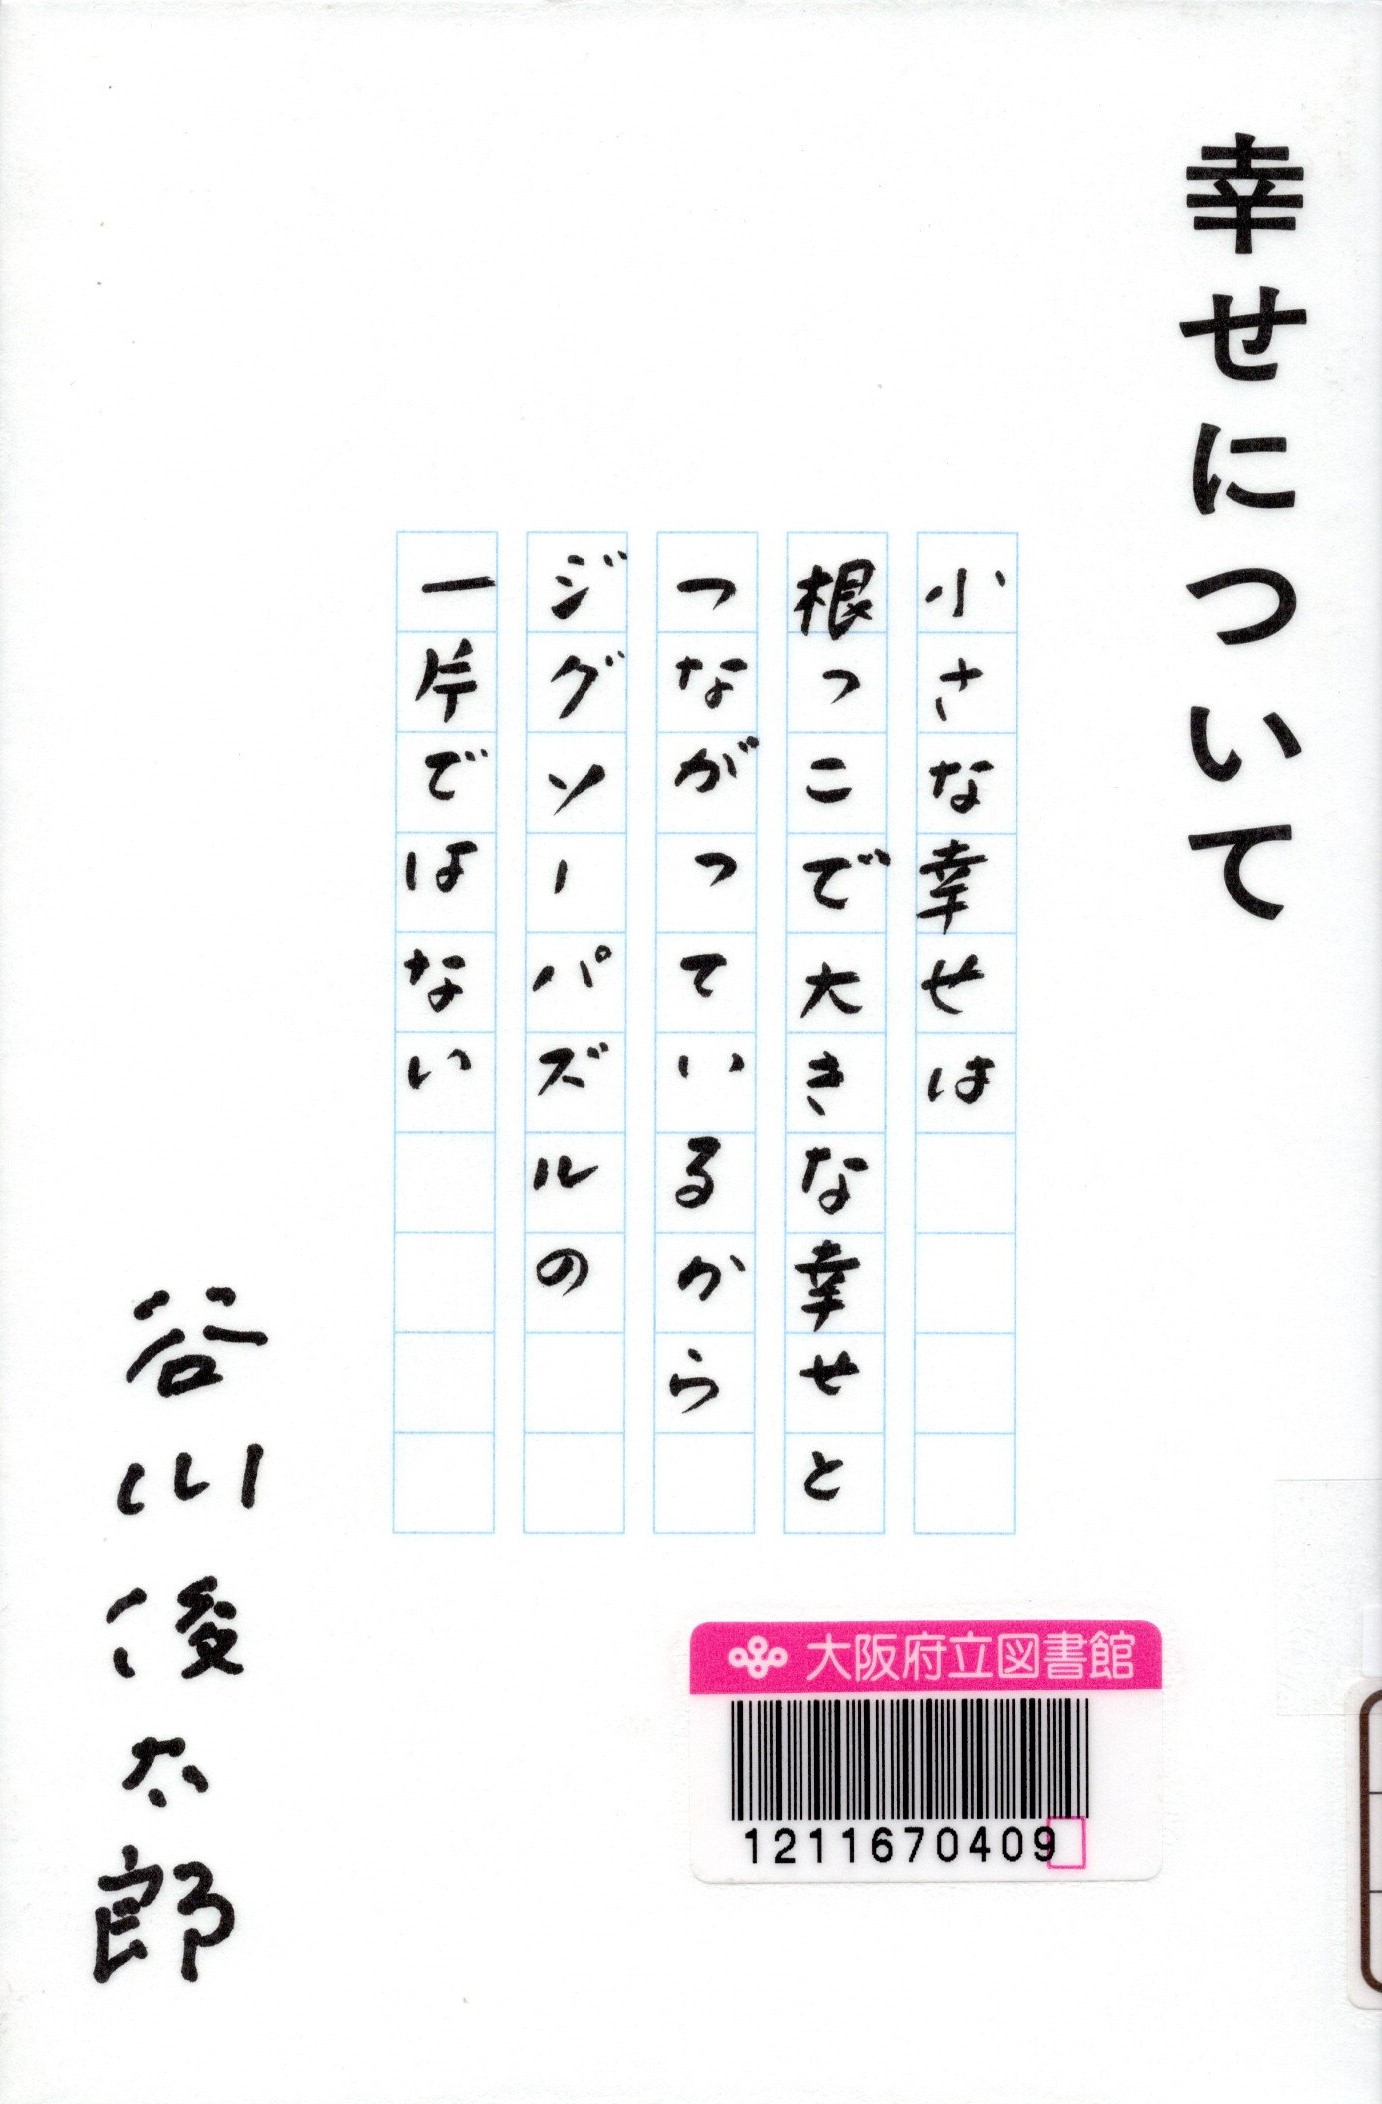 幸せについて
小さな幸せは
根っこで大きな幸せと
つながっているから
ジグソーパズルの
一片ではない
谷川俊太郎
大阪府立図書館
1211670409